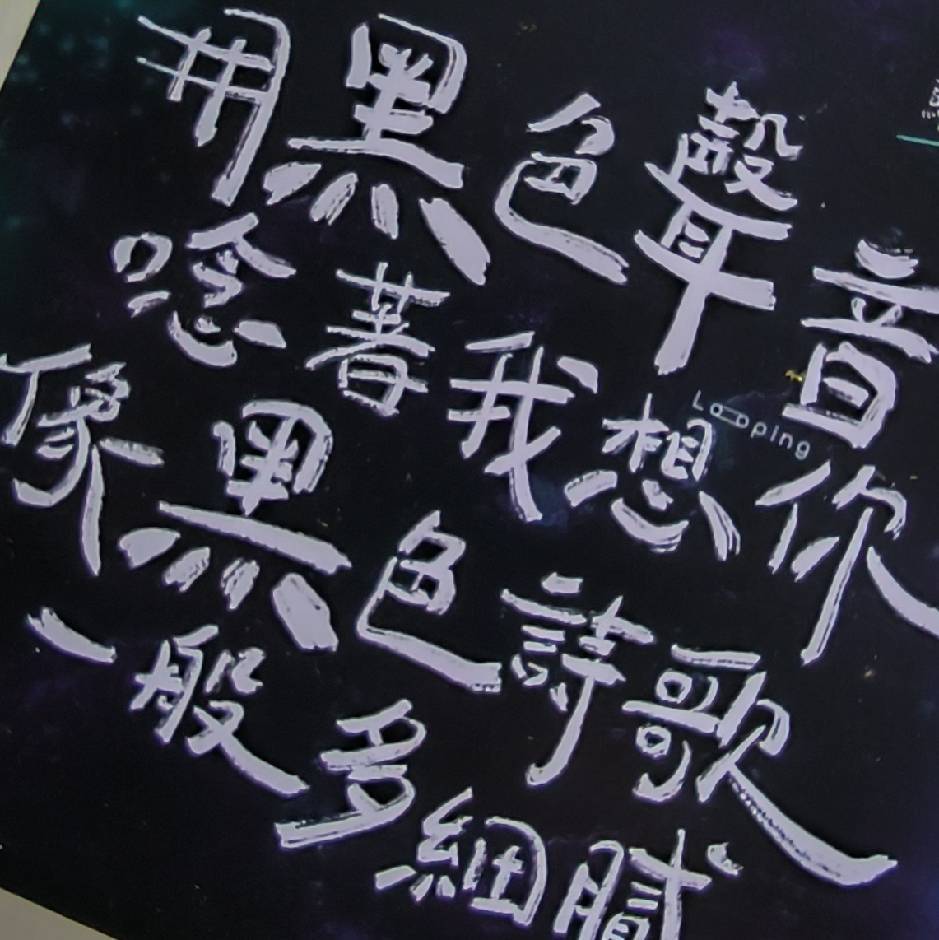 用黑色聲音
唸著我想你
Looping
像黑色詩歌
一般多細膩